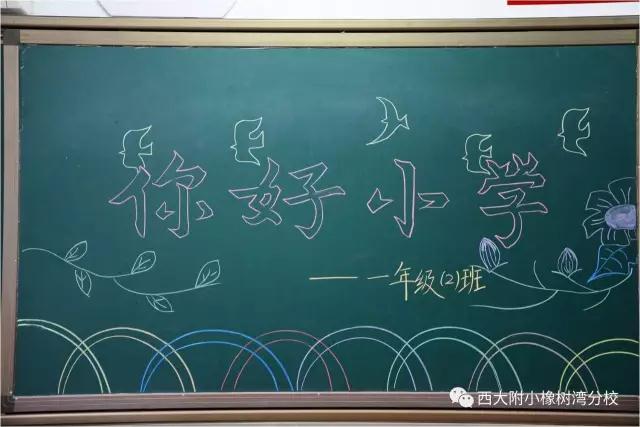 你好小学
——一年级(2)班
西大附小橡树湾分校